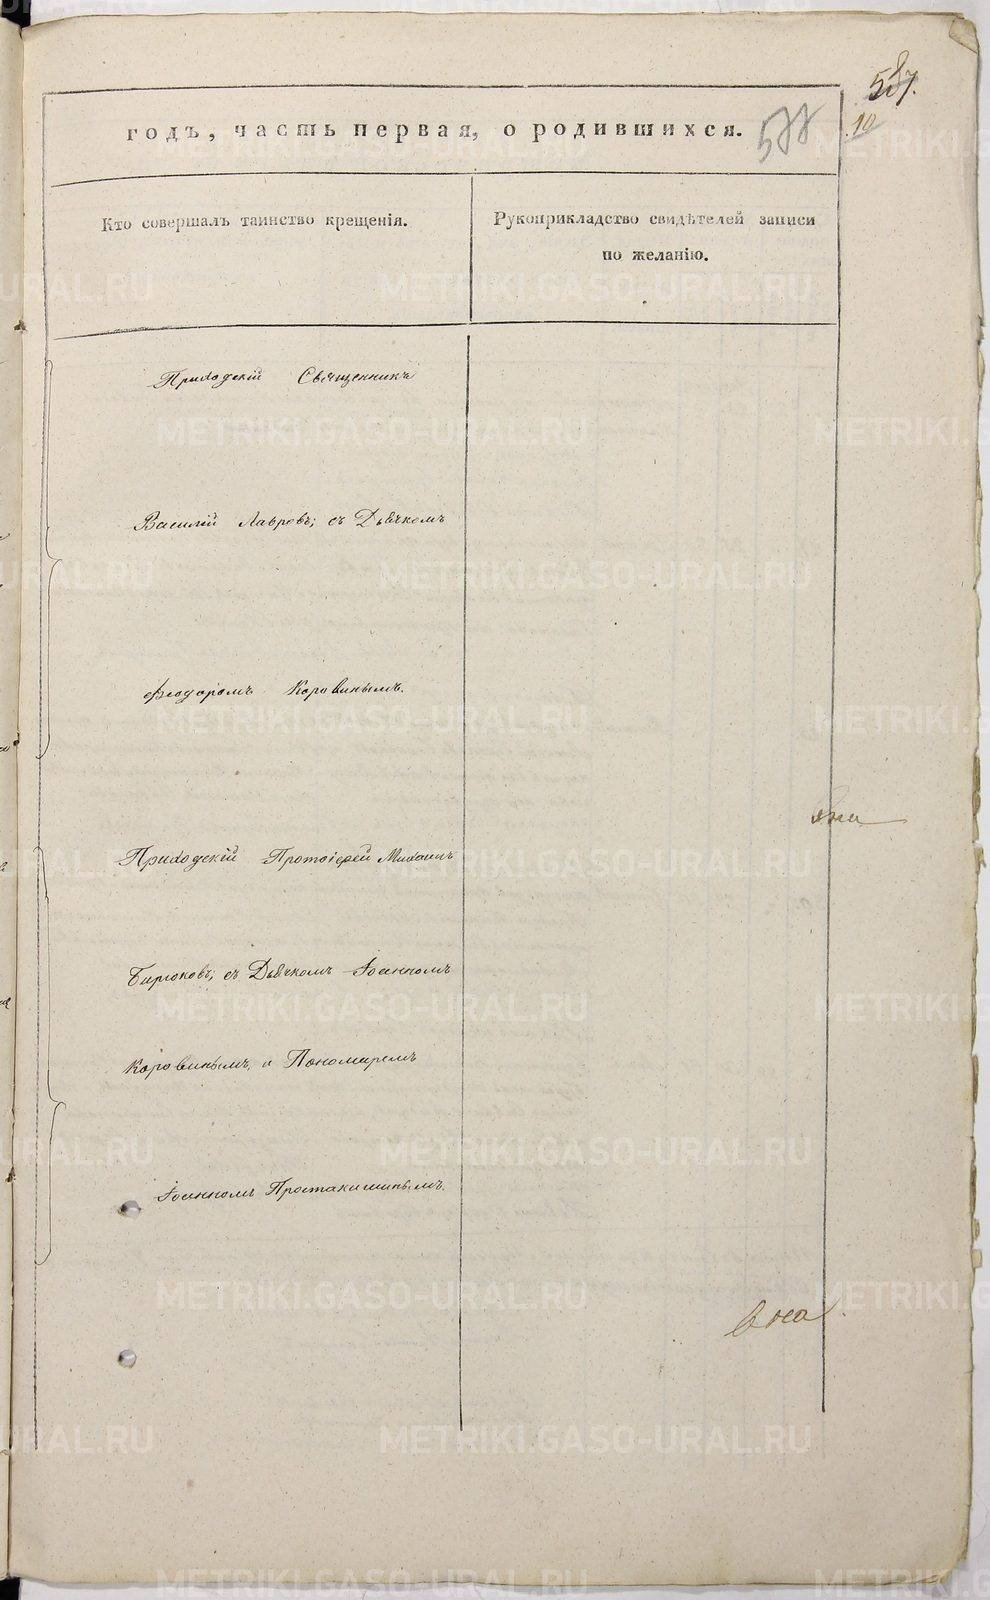 587.
10
годъ, часть первая, о родившихся. 577
Кто совершалъ таинство крещенія.
Рукоприкладство свидѣтелей записи
по желанію.
Приходскій Священникъ
Василій Лавровъ; съ Дьячкомъ
Феодоромъ Коровинымъ.
Приходскій Протоіерей Михаилъ
Бирюковъ; съ Дьячкомъ Іоанномъ
Коровинымъ, и Пономаремъ
Іоанномъ Простакишинымъ.
METRIKI.GASO-URAL.RU